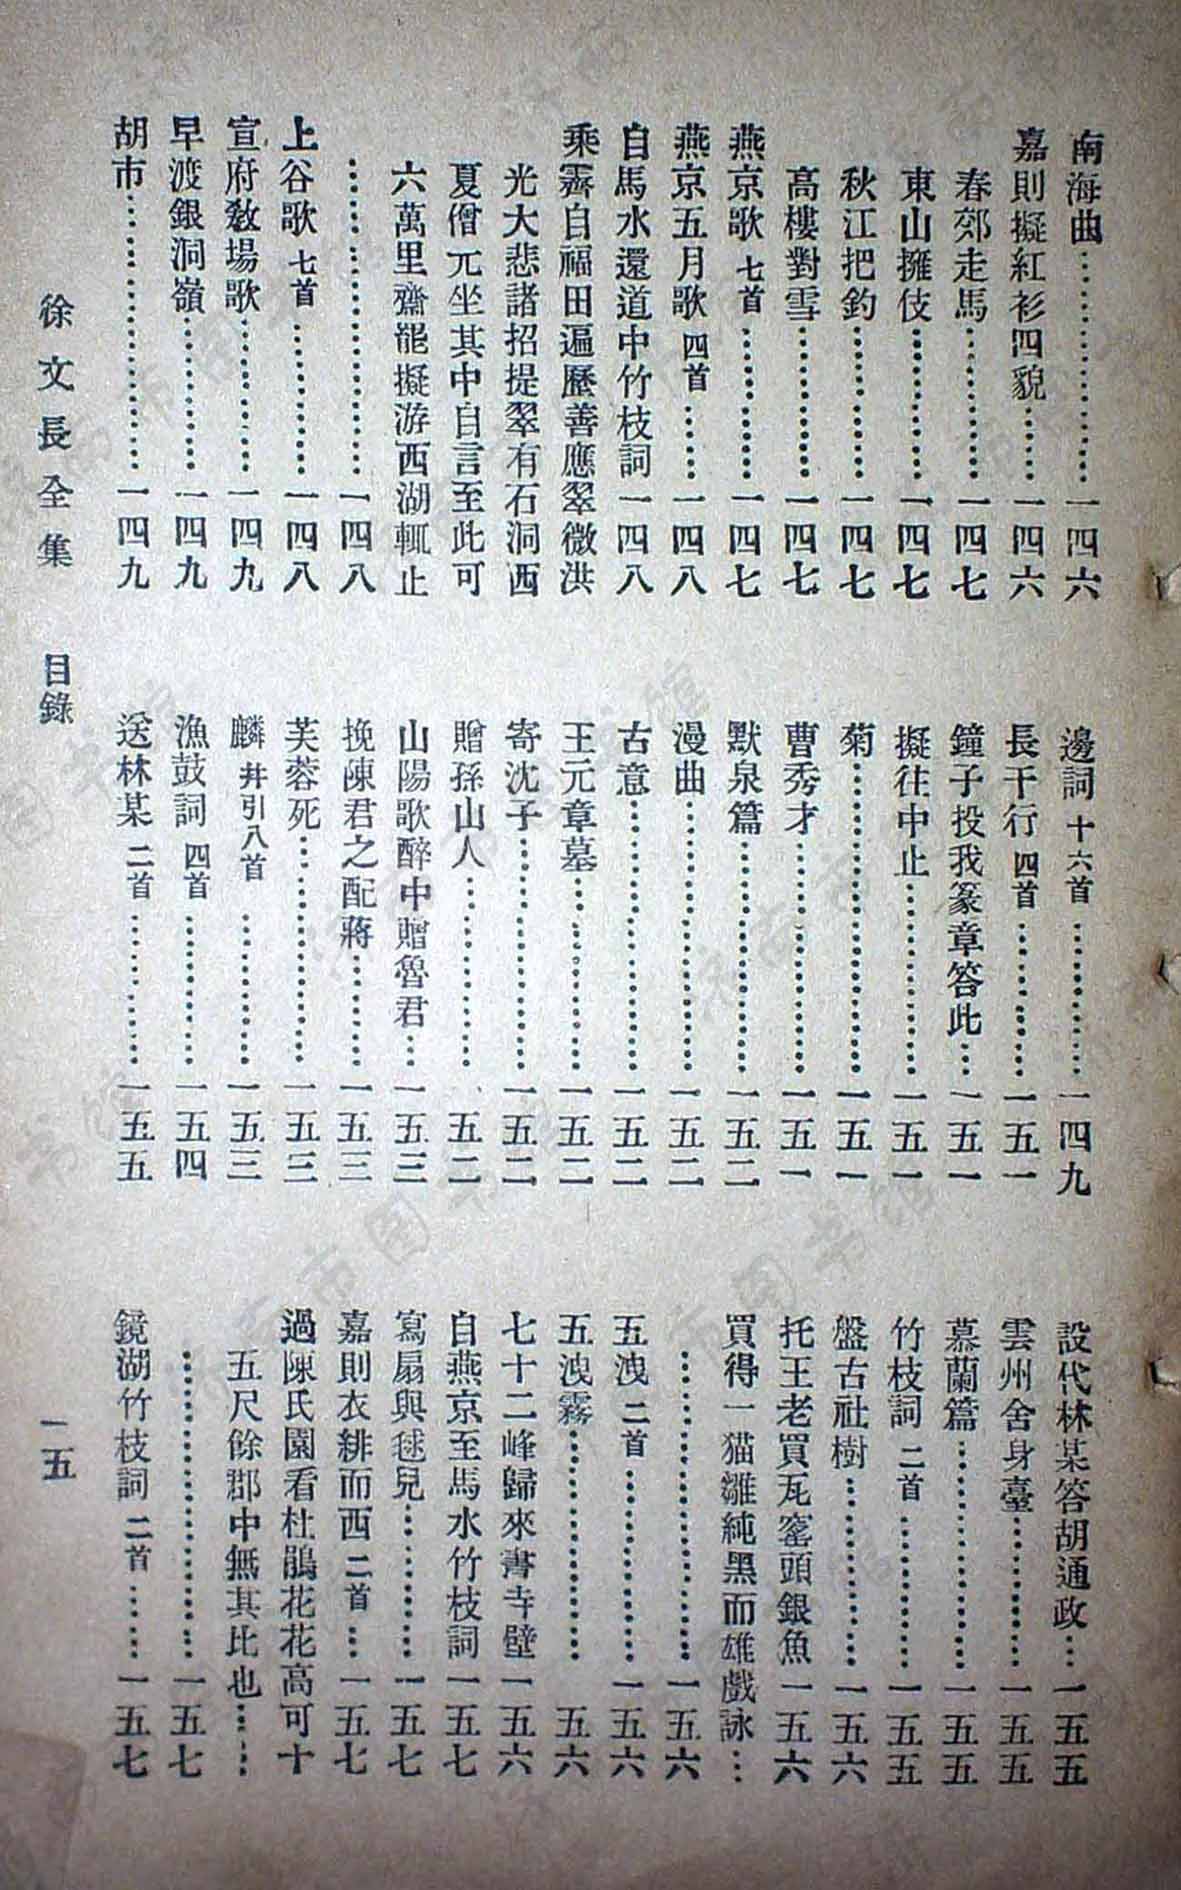 南海曲……一四六
嘉則擬紅衫四貌……一四六
春郊走馬……一四七
東山擁伎……一四七
秋江把釣……一四七
高樓對雪……一四七
燕京歌 七首……一四七
燕京五月歌 四首……一四八
自馬水還道中竹枝詞 一四八
乘霽自福田遍歷善應翠微洪
光大悲諸招提翠有石洞西
夏僧元坐其中自言至此可
六萬里齋罷擬游西湖輒止
……一四八
上谷歌 七首……一四八
宣府教場歌……一四九
早渡銀洞嶺……一四九
胡市……一四九
邊詞 十六首……一四九
長干行 四首……一五一
鐘子投我篆章答此…一五一
擬往中止……一五一
菊……一五一
曹秀才……一五一
默泉篇……一五二
漫曲……一五二
古意……一五二
王元章墓……一五二
寄沈子……一五二
贈孫山人……一五二
山陽歌醉中贈魯君…一五三
挽陳君之配蔣……一五三
芙蓉死……一五三
麟 井引八首……一五三
漁鼓詞 四首……一五四
送林某 二首……一五五
設代林某答胡通政…一五五
雲州舍身臺……一五五
慕蘭篇……一五五
竹枝詞 二首……一五五
盤古社樹……一五六
托王老買瓦窰頭銀魚 一五六
買得一猫雛純黑而雄戲詠…
……一五六
五洩 二首……一五六
五洩霧……五六
七十二峰歸來書寺壁 一五六
自燕京至馬水竹枝詞 一五七
寫扇與毬兒……一五七
嘉則衣緋而西 二首…一五七
過陳氏園看杜鵑花花高可十
五尺餘郡中無其比也……
……一五七
鏡湖竹枝詞 二首……一五七
徐文長全集 目錄 一五